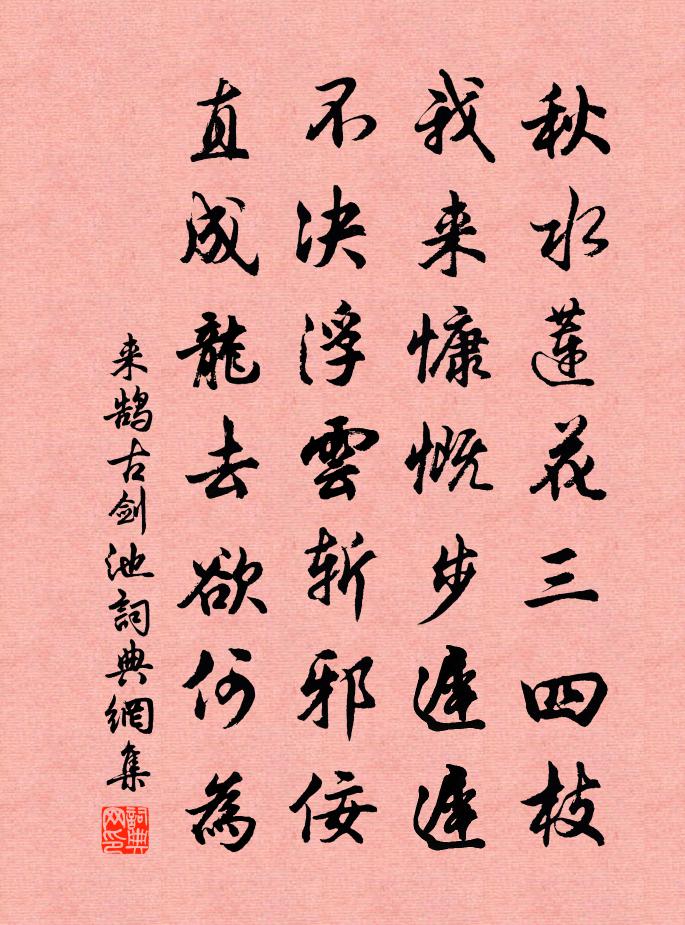 秋水蓮花三四枝
我来慷慨步遲遲
不决浮雲斩邪佞
直成龍去欲何為
来鹄古剑池詞典網集
詞典网印